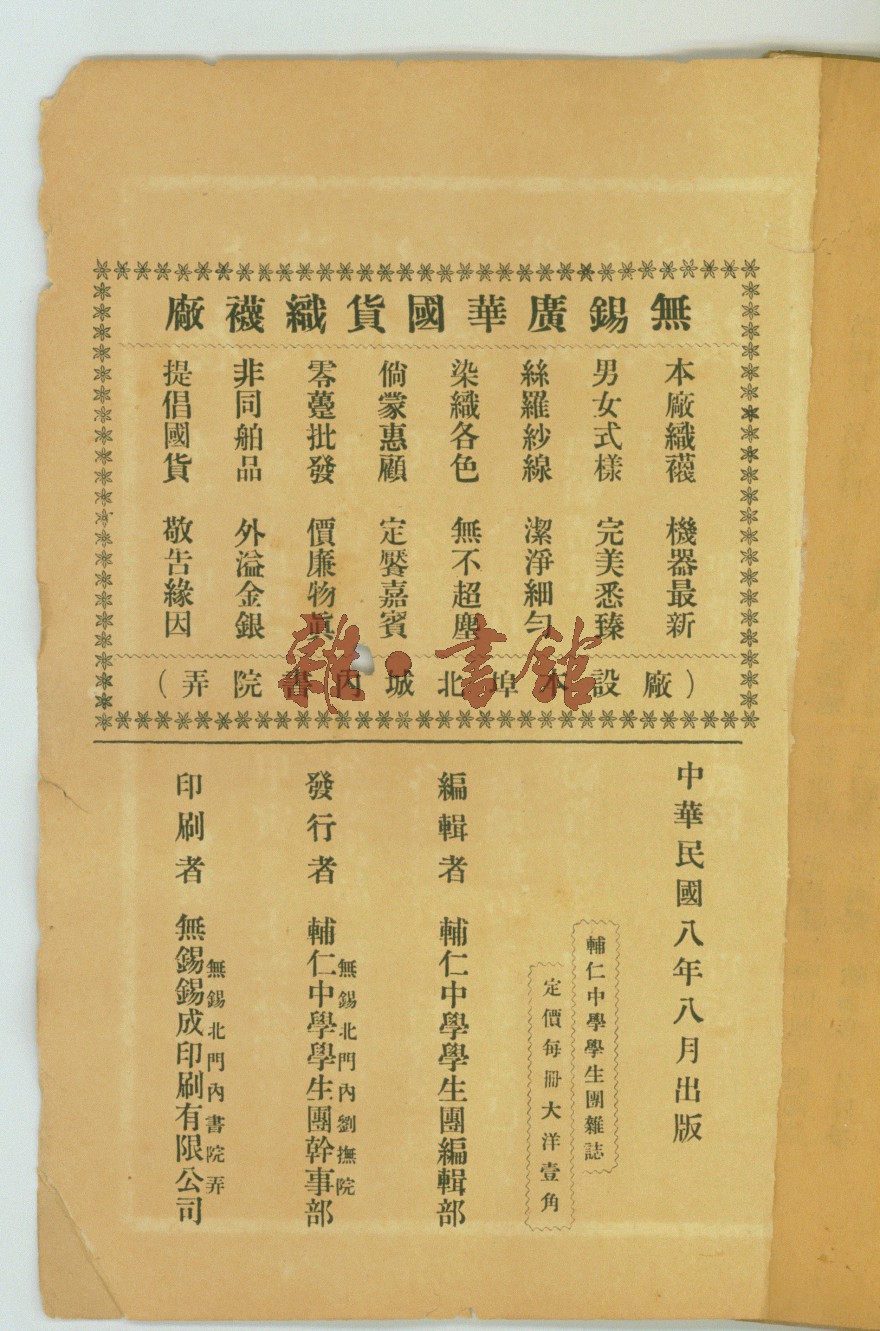 無錫廣華國貨織襪廠
本廠織襪 機器最新
男女式樣 完美悉臻
絲羅紗線 潔淨細勻
染織各色 無不超塵
倘蒙惠顧 定饜嘉賓
零躉批發 價廉物眞
非同舶品 外溢金銀
提倡國貨 敬告緣因
(廠設本埠北城內書院弄)
雜·書館
中華民國八年八月出版
輔仁中學學生團雜誌
定價每冊大洋壹角
編輯者 輔仁中學學生團編輯部
無錫北門內劉撫院
發行者 輔仁中學學生團幹事部
無錫北門內書院弄
印刷者 無錫錫成印刷有限公司